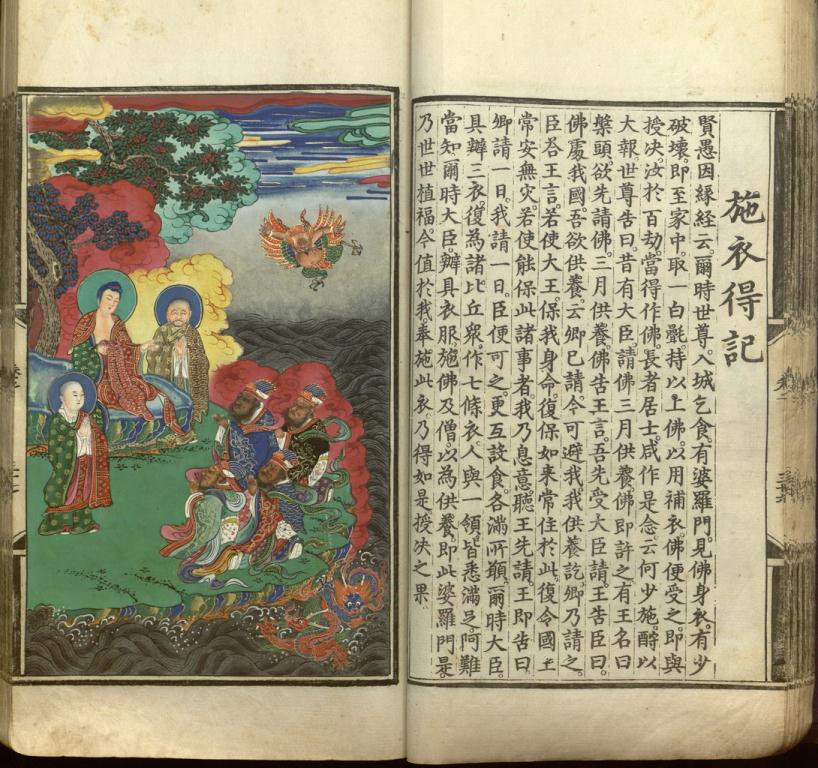 施衣得記
賢愚因緣經云。爾時世尊。入城乞食。有婆羅門。見佛身衣。有少
破壞。即至家中。取一白氎。持以上佛。以用補衣。佛便受之。即與
授决。汝於百劫。當得作佛。長者居士。咸作是念。云何少施。酧以
大報。世尊告曰。昔有大臣。請佛三月供養。佛即許之。有王名曰
槃頭。欲先請佛。三月供養。佛告王言。吾先受大臣請。王告臣曰。
佛處我國。吾欲供養。云卿已請。今可避我。我供養訖。卿乃請之。
臣荅王言。若使大王。保我身命。復保如來。常住於此。復令國土
常安無灾。若使能保此諸事者。我乃息意。聽王先請。王即告曰。
卿請一日。我請一日。臣便可之。更互設食。各滿所願。爾時大臣。
具辦三衣。復為諸比丘衆。作七條衣。人與一領。皆悉滿足。阿難
當知。爾時大臣。辦具衣服。施佛及僧。以為供養。即此婆羅門是。
乃世世植福。今值於我。奉施此衣。乃得如是授决之果。